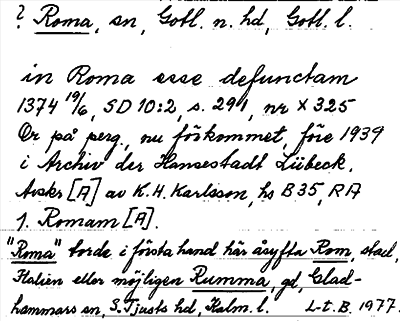 ? Roma, sn, Gotl. n. hd, Gotl. l.
in Roma esse defunctam
1374 19/6, SD 10:2, s. 291, nr X 325
Or på perg., nu förkommet, före 1939
i Archiv der Hansestadt Lübeck.
Avskr [A] av K. H. Karlsson, hs B 35, RA
1. Romam [A].
"Roma" torde i första hand här åsyfta Rom, stad,
Italien eller möjligen Rumma, gd, Glad-
hammars sn, S. Tjusts hd, Kalm. l. L-t. B. 1977.